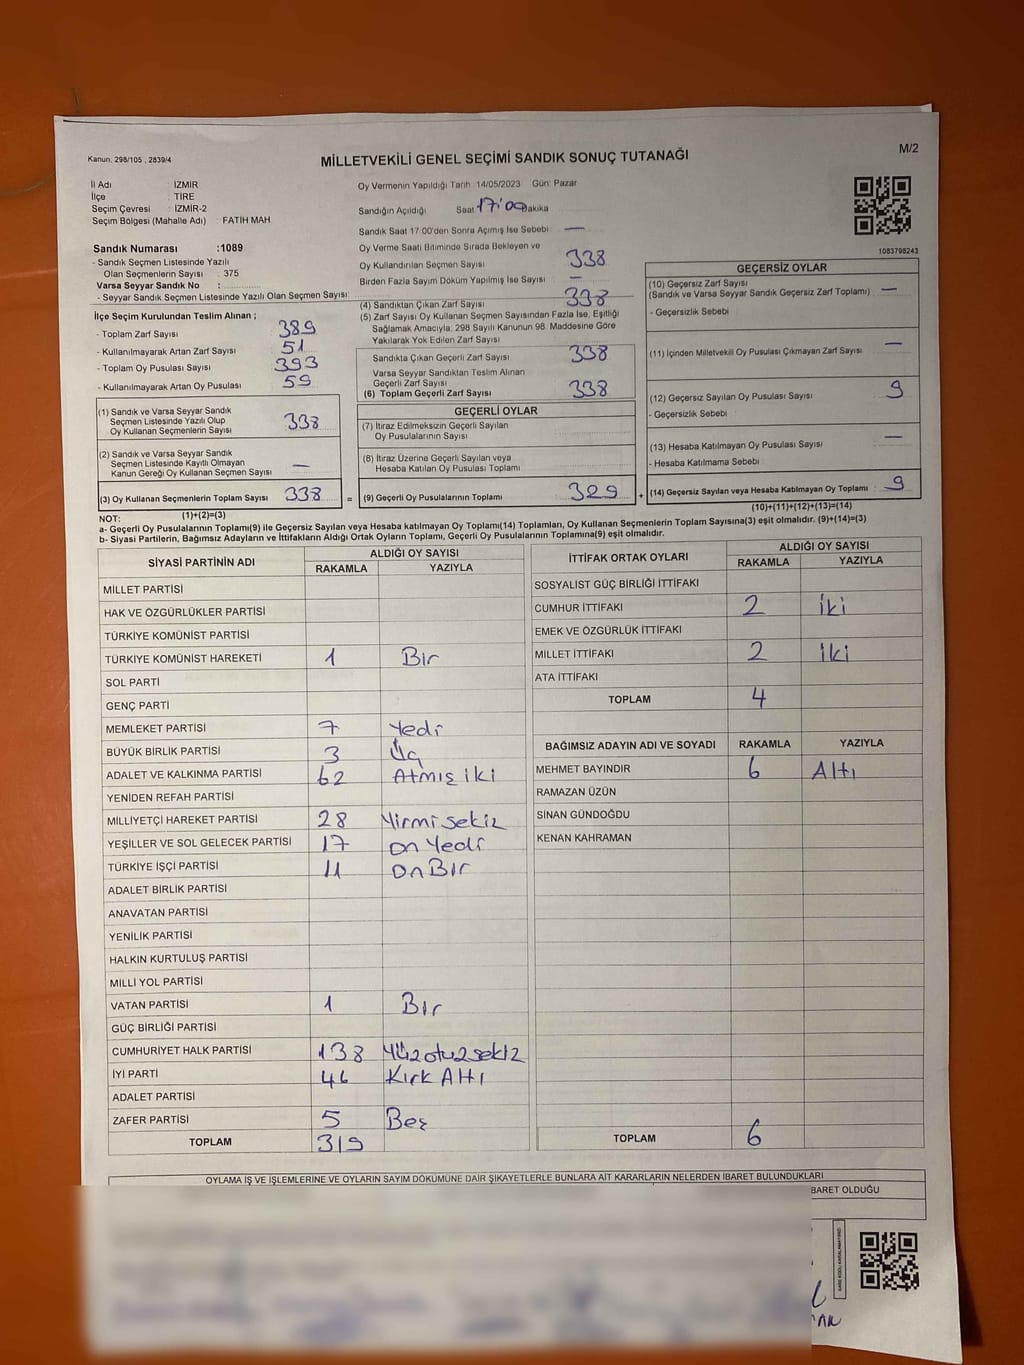 Kanun: 298/105 , 2839/4
MİLLETVEKİLİ GENEL SEÇİMİ SANDIK SONUÇ TUTANAĞI
M/2
İl Adı : İZMİR
İlçe : TİRE
Seçim Çevresi : İZMİR-2
Seçim Bölgesi (Mahalle Adı) : FATİH MAH
Sandık Numarası :1089
- Sandık Seçmen Listesinde Yazılı
Olan Seçmenlerin Sayısı : 375
Varsa Seyyar Sandık No :
- Seyyar Sandık Seçmen Listesinde Yazılı Olan Seçmen Sayısı:
İlçe Seçim Kurulundan Teslim Alınan ;
- Toplam Zarf Sayısı 389
- Kullanılmayarak Artan Zarf Sayısı 51
- Toplam Oy Pusulası Sayısı 393
- Kullanılmayarak Artan Oy Pusulası 59
(1) Sandık ve Varsa Seyyar Sandık
Seçmen Listesinde Yazılı Olup
Oy Kullanan Seçmenlerin Sayısı 338
(2) Sandık ve Varsa Seyyar Sandık
Seçmen Listesinde Kayıtlı Olmayan
Kanun Gereği Oy Kullanan Seçmen Sayısı —
(3) Oy Kullanan Seçmenlerin Toplam Sayısı 338
(1)+(2)=(3)
Oy Vermenin Yapıldığı Tarih 14/05/2023 Gün: Pazar
Sandığın Açıldığı Saat 17:00 Dakika
Sandık Saat 17:00'den Sonra Açımış İse Sebebi —
Oy Verme Saati Bitiminde Sırada Bekleyen ve
Oy Kullandırılan Seçmen Sayısı 338
Birden Fazla Sayım Döküm Yapılmış İse Sayısı —
(4) Sandıktan Çıkan Zarf Sayısı 338
(5) Zarf Sayısı Oy Kullanan Seçmen Sayısından Fazla İse, Eşitliği
Sağlamak Amacıyla, 298 Sayılı Kanunun 98. Maddesine Göre
Yakılarak Yok Edilen Zarf Sayısı
Sandıkta Çıkan Geçerli Zarf Sayısı 338
Varsa Seyyar Sandıktan Teslim Alınan
Geçerli Zarf Sayısı
(6) Toplam Geçerli Zarf Sayısı 338
GEÇERLİ OYLAR
(7) İtiraz Edilmeksizin Geçerli Sayılan
Oy Pusulalarının Sayısı
(8) İtiraz Üzerine Geçerli Sayılan veya
Hesaba Katılan Oy Pusulası Toplamı
= (9) Geçerli Oy Pusulalarının Toplamı 329 +
1083798243
GEÇERSİZ OYLAR
(10) Geçersiz Zarf Sayısı
(Sandık ve Varsa Seyyar Sandık Geçersiz Zarf Toplamı) —
- Geçersizlik Sebebi
(11) İçinden Milletvekili Oy Pusulası Çıkmayan Zarf Sayısı —
(12) Geçersiz Sayılan Oy Pusulası Sayısı 9
- Geçersizlik Sebebi
(13) Hesaba Katılmayan Oy Pusulası Sayısı —
- Hesaba Katılmama Sebebi
(14) Geçersiz Sayılan veya Hesaba Katılmayan Oy Toplamı 9
(10)+(11)+(12)+(13)=(14)
NOT:
a- Geçerli Oy Pusulalarının Toplamı(9) ile Geçersiz Sayılan veya Hesaba katılmayan Oy Toplamı(14) Toplamları, Oy Kullanan Seçmenlerin Toplam Sayısına(3) eşit olmalıdır. (9)+(14)=(3)
b- Siyasi Partilerin, Bağımsız Adayların ve İttifakların Aldığı Ortak Oyların Toplamı, Geçerli Oy Pusulalarının Toplamına(9) eşit olmalıdır.
SİYASİ PARTİNİN ADI ALDIĞI OY SAYISI
RAKAMLA YAZIYLA
MİLLET PARTİSİ
HAK VE ÖZGÜRLÜKLER PARTİSİ
TÜRKİYE KOMÜNİST PARTİSİ
TÜRKİYE KOMÜNİST HAREKETİ 1 Bir
SOL PARTİ
GENÇ PARTİ
MEMLEKET PARTİSİ 7 Yedi
BÜYÜK BİRLİK PARTİSİ 3 Üç
ADALET VE KALKINMA PARTİSİ 62 Atmış iki
YENİDEN REFAH PARTİSİ
MİLLİYETÇİ HAREKET PARTİSİ 28 Yirmi sekiz
YEŞİLLER VE SOL GELECEK PARTİSİ 17 on Yedi
TÜRKİYE İŞÇİ PARTİSİ 11 on Bir
ADALET BİRLİK PARTİSİ
ANAVATAN PARTİSİ
YENİLİK PARTİSİ
HALKIN KURTULUŞ PARTİSİ
MİLLİ YOL PARTİSİ
VATAN PARTİSİ 1 Bir
GÜÇ BİRLİĞİ PARTİSİ
CUMHURİYET HALK PARTİSİ 138 Yüz otuz sekiz
İYİ PARTİ 46 Kırk Altı
ADALET PARTİSİ
ZAFER PARTİSİ 5 Beş
TOPLAM 319
İTTİFAK ORTAK OYLARI ALDIĞI OY SAYISI
RAKAMLA YAZIYLA
SOSYALİST GÜÇ BİRLİĞİ İTTİFAKI
CUMHUR İTTİFAKI 2 iki
EMEK VE ÖZGÜRLÜK İTTİFAKI
MİLLET İTTİFAKI 2 iki
ATA İTTİFAKI
TOPLAM 4
BAĞIMSIZ ADAYIN ADI VE SOYADI RAKAMLA YAZIYLA
MEHMET BAYINDIR 6 Altı
RAMAZAN ÜZÜN
SİNAN GÜNDOĞDU
KENAN KAHRAMAN
TOPLAM 6
OYLAMA İŞ VE İŞLEMLERİNE VE OYLARIN SAYIM DÖKÜMÜNE DAİR ŞİKAYETLERLE BUNLARA AİT KARARLARIN NELERDEN İBARET BULUNDUKLARI
BARET OLDUĞU